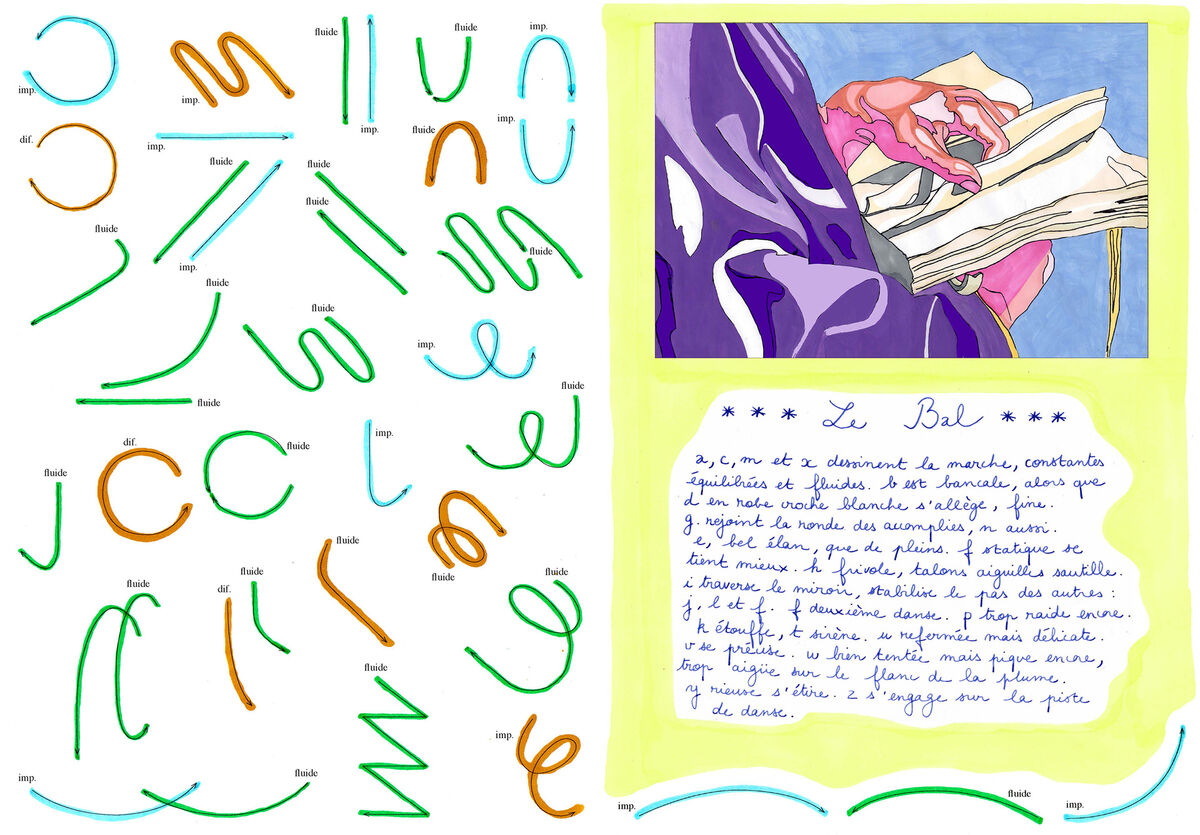 fluide
imp.
imp.
imp.
fluide
imp.
imp.
dif.
imp.
fluide
imp.
fluide
fluide
imp.
fluide
fluide
fluide
fluide
fluide
imp.
fluide
fluide
imp.
dif.
fluide
fluide
fluide
fluide
fluide
fluide
dif.
fluide
fluide
imp.
imp.
fluide
imp.
fluide
imp.
*** Le Bal ***
a, c, m et x dessinent la marche, constantes
équilibrées et fluides. b est bancale, alors que
d en robe croche blanche s'allège, fine.
g. rejoint la ronde des accomplies, n aussi.
e, bel élan, que de pleins. f statique se
tient mieux. h frivole, talons aiguilles sautille.
i traverse le miroir, stabilise le pas des autres :
j, l et f. f deuxième danse. p trop raide encore.
k étouffe, t sirène. u refermée mais délicate.
v se précise. w bien tentée mais pique encore,
trop aigüe sur le flanc de la plume.
y rieuse s'étire. z s'engage sur la piste
de danse.